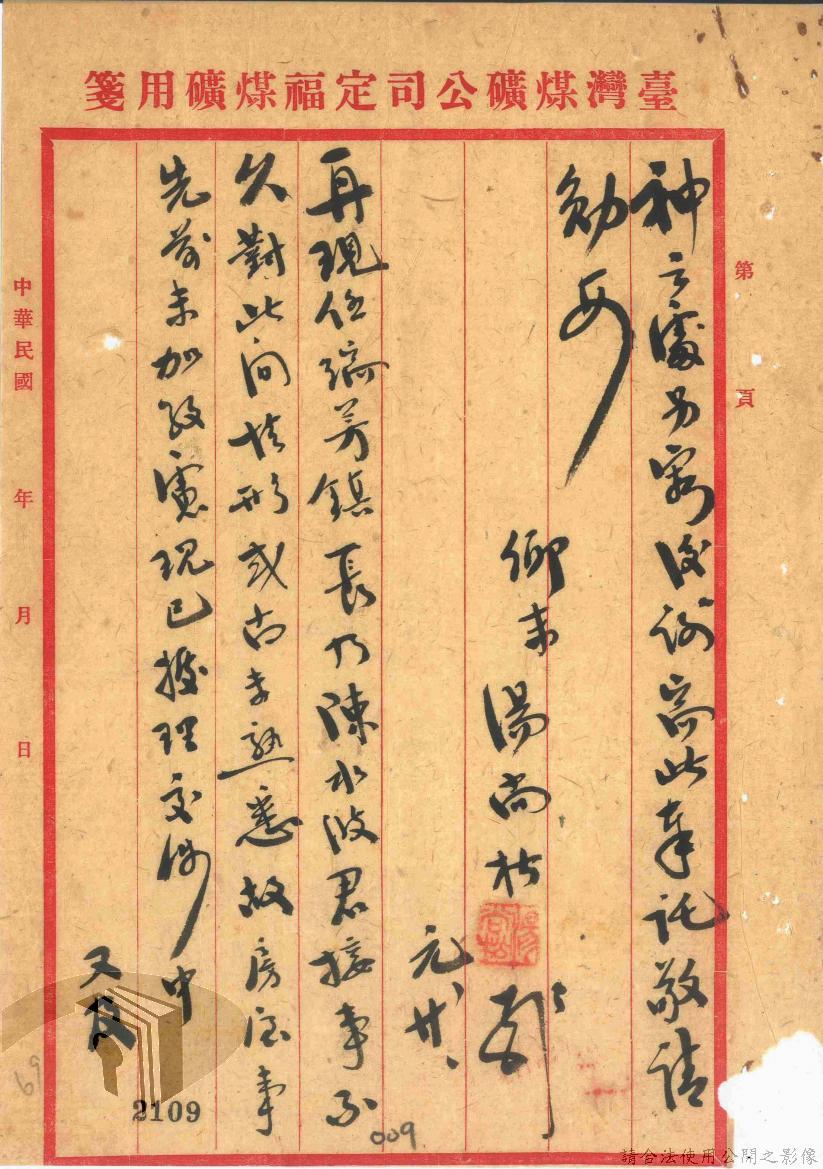 臺灣煤礦公司定福煤礦用箋
第 頁
神之處另容後謝耑此奉託敬請
勛安
鄉末湯尚
元、廿、
再現任瑞芳鎮長乃陳水波君接事不
久對此間情形或尚未熟悉故房宿事
先前未加考慮現已據理交涉中
又及
中華民國 年 月 日
69
2109
009
請合法使用公開之影像